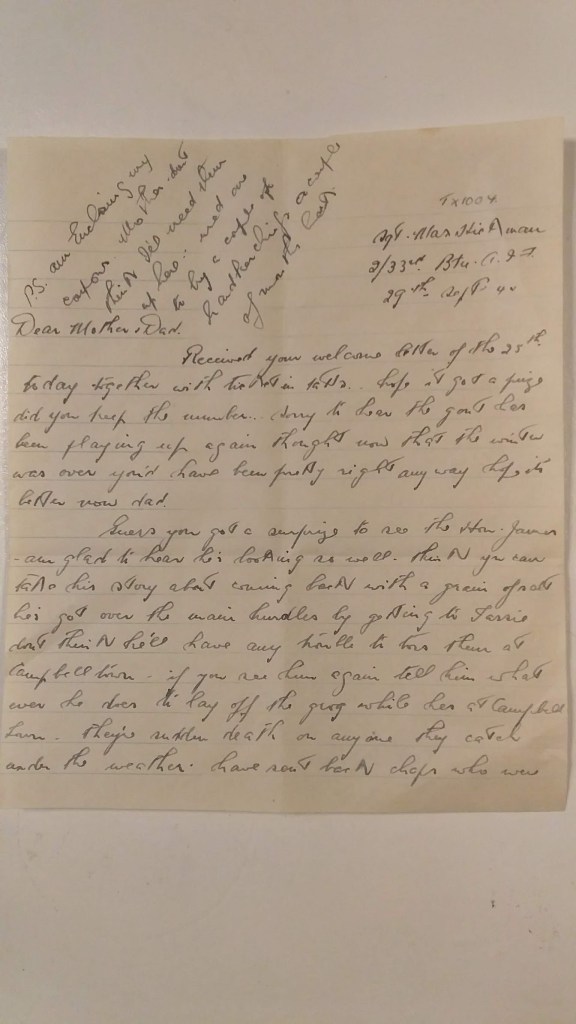 P.S. am Enclosing my
coupons Mother. dont
think I'll need them
up here: need one
to buy a couple of
handkerchiefs a couple
of months back.
TX1004
Sgt. Max Hickman
2/33rd. Btn. A.I.F.
29th Sept. 40
Dear Mother & Dad.
Received your welcome letter of the 25th.
today together with ticket in tatts.. hope it got a prize
did you keep the number... Sorry to hear the gout has
been playing up again thought now that the winter
was over you'd have been pretty right anyway hope its
better now dad.
Guess you got a surprise to see the Hon. James
- am glad to hear he's looking so well - think you can
take his story about coming back with a grain of salt
he's got over the main hurdles by getting to
dont think he'll have any trouble to toss them at
Campbelltown - if you see him again tell him what
ever he does to lay off the grog while hes at Campbell
town - they're sudden death on anyone they catch
under the weather. have sent back chaps who were